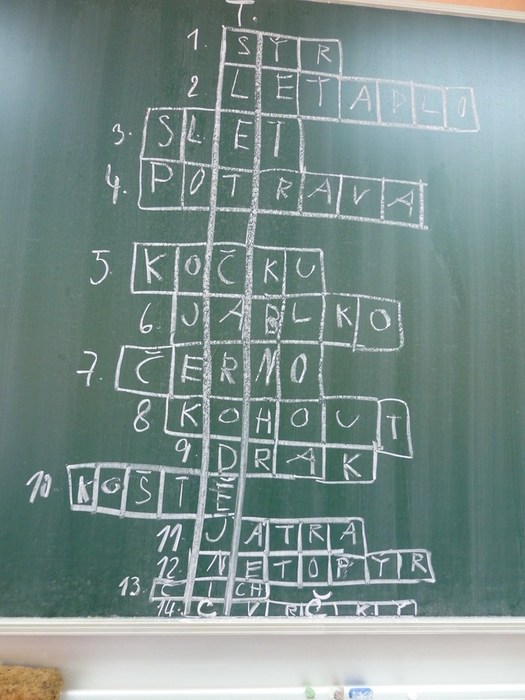 T.
1. SÝR
2. LETADLO
3. SLET
4. POTRAVA
5. KOČKU
6 JABLKO
7. ČERNO
8 KOHOUT
9. DRAK
10. KOŠTĚ
11. JATRA
12. NETOPÝR
13. ČICH
14. CVRČKY